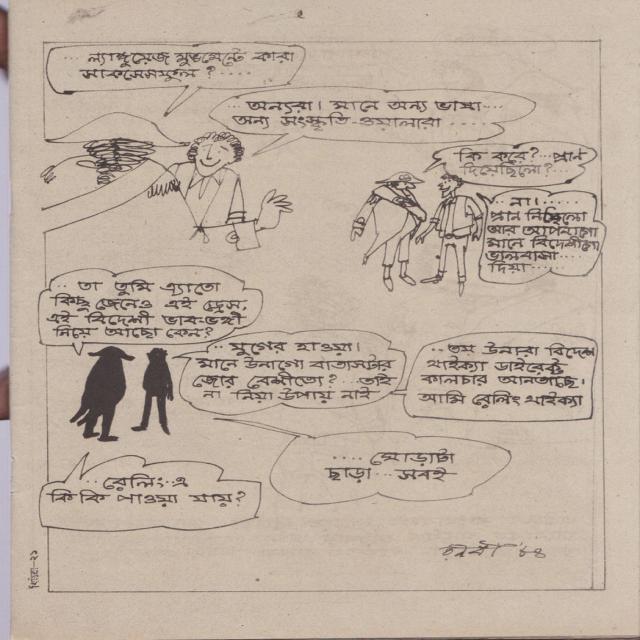 ...ল্যাঙ্গুয়েজ মুভমেন্টে কারা
সাকসেসফুল?.....
...অন্যরা। মানে অন্য ভাষা...
অন্য সংস্কৃতি-ওয়ালারা.....
কি করে?...প্রান
দিয়েছিলো?...
না।......
প্রান নিছিলো
আর আপনাগো
মানে বিদেশীগো
ভালবাসা
দিয়া....
...তা তুমি এ্যাতো
কিছু জেনেও এই ড্রেস,
এই বিদেশী ভাবভঙ্গী
নিয়ে আছো কেন?
...যুগের হাওয়া।
মানে উনাগো বাতাসটার
জোর বেশীতো?...তাই
না নিয়া উপায় নাই
..তয় উনারা বিদেশ
থাইক্যা ডাইরেক্ট
কালচার আনতাছে।
আমি রেলিং থাইক্যা
...রেলিং-এ
কি কি পাওয়া যায়?
....মোড়াটা
ছাড়া...সবই
রনবী '৮৪